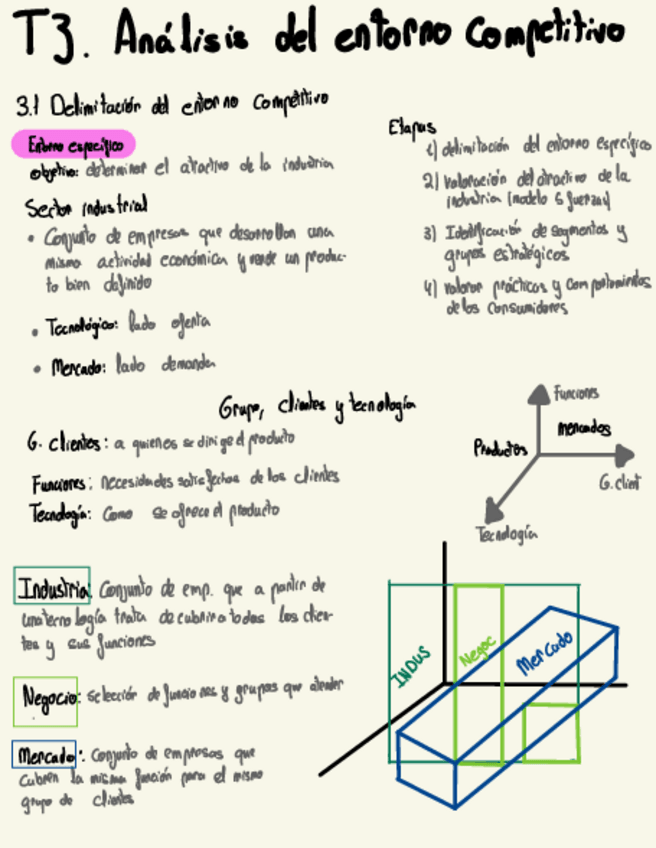 T3. Análisis del entorno competitivo
3.1 Delimitación del entorno competitivo
Entorno específico
objetivo: determinar el atractivo de la industria
Sector industrial
• Conjunto de empresas que desarrollan una
misma actividad económica y vende un produc-
to bien definido
• Tecnológico: lado oferta
• Mercado: lado demanda
Etapas
1) delimitación del entorno específico
2) valoración del atractivo de la
industria (modelo 5 fuerzas)
3) Identificación de segmentos y
grupos estratégicos
4) valorar prácticas y comportamientos
de los consumidores
Grupo, clientes y tecnología
G. clientes: a quienes se dirige el producto
Funciones: necesidades satisfechas de los clientes
Tecnología: Como se ofrece el producto
Funciones
Productos
mercados
G. client
Tecnología
Industria: Conjunto de emp. que a partir de
una tecnología trata de cubrir a todos los clien-
tes y sus funciones
Negocio: selección de funciones y grupos que atender
Mercado: Conjunto de empresas que
cubren la misma función para el mismo
grupo de clientes
INDUS
Negoc
Mercado